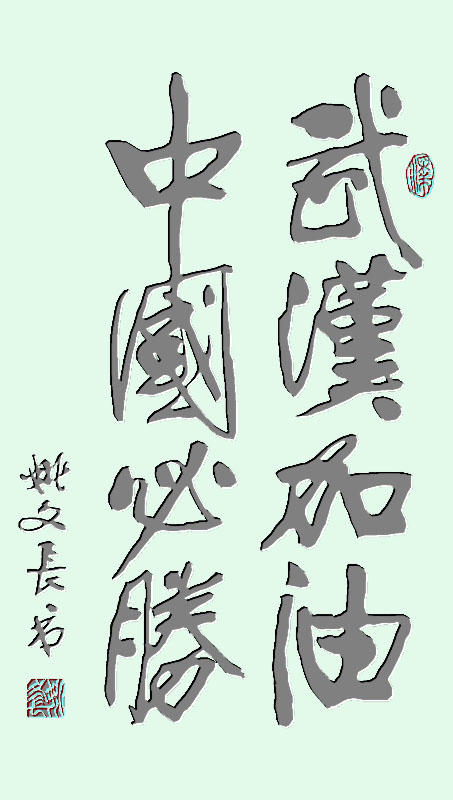 武漢加油
中國必勝
姚文長书